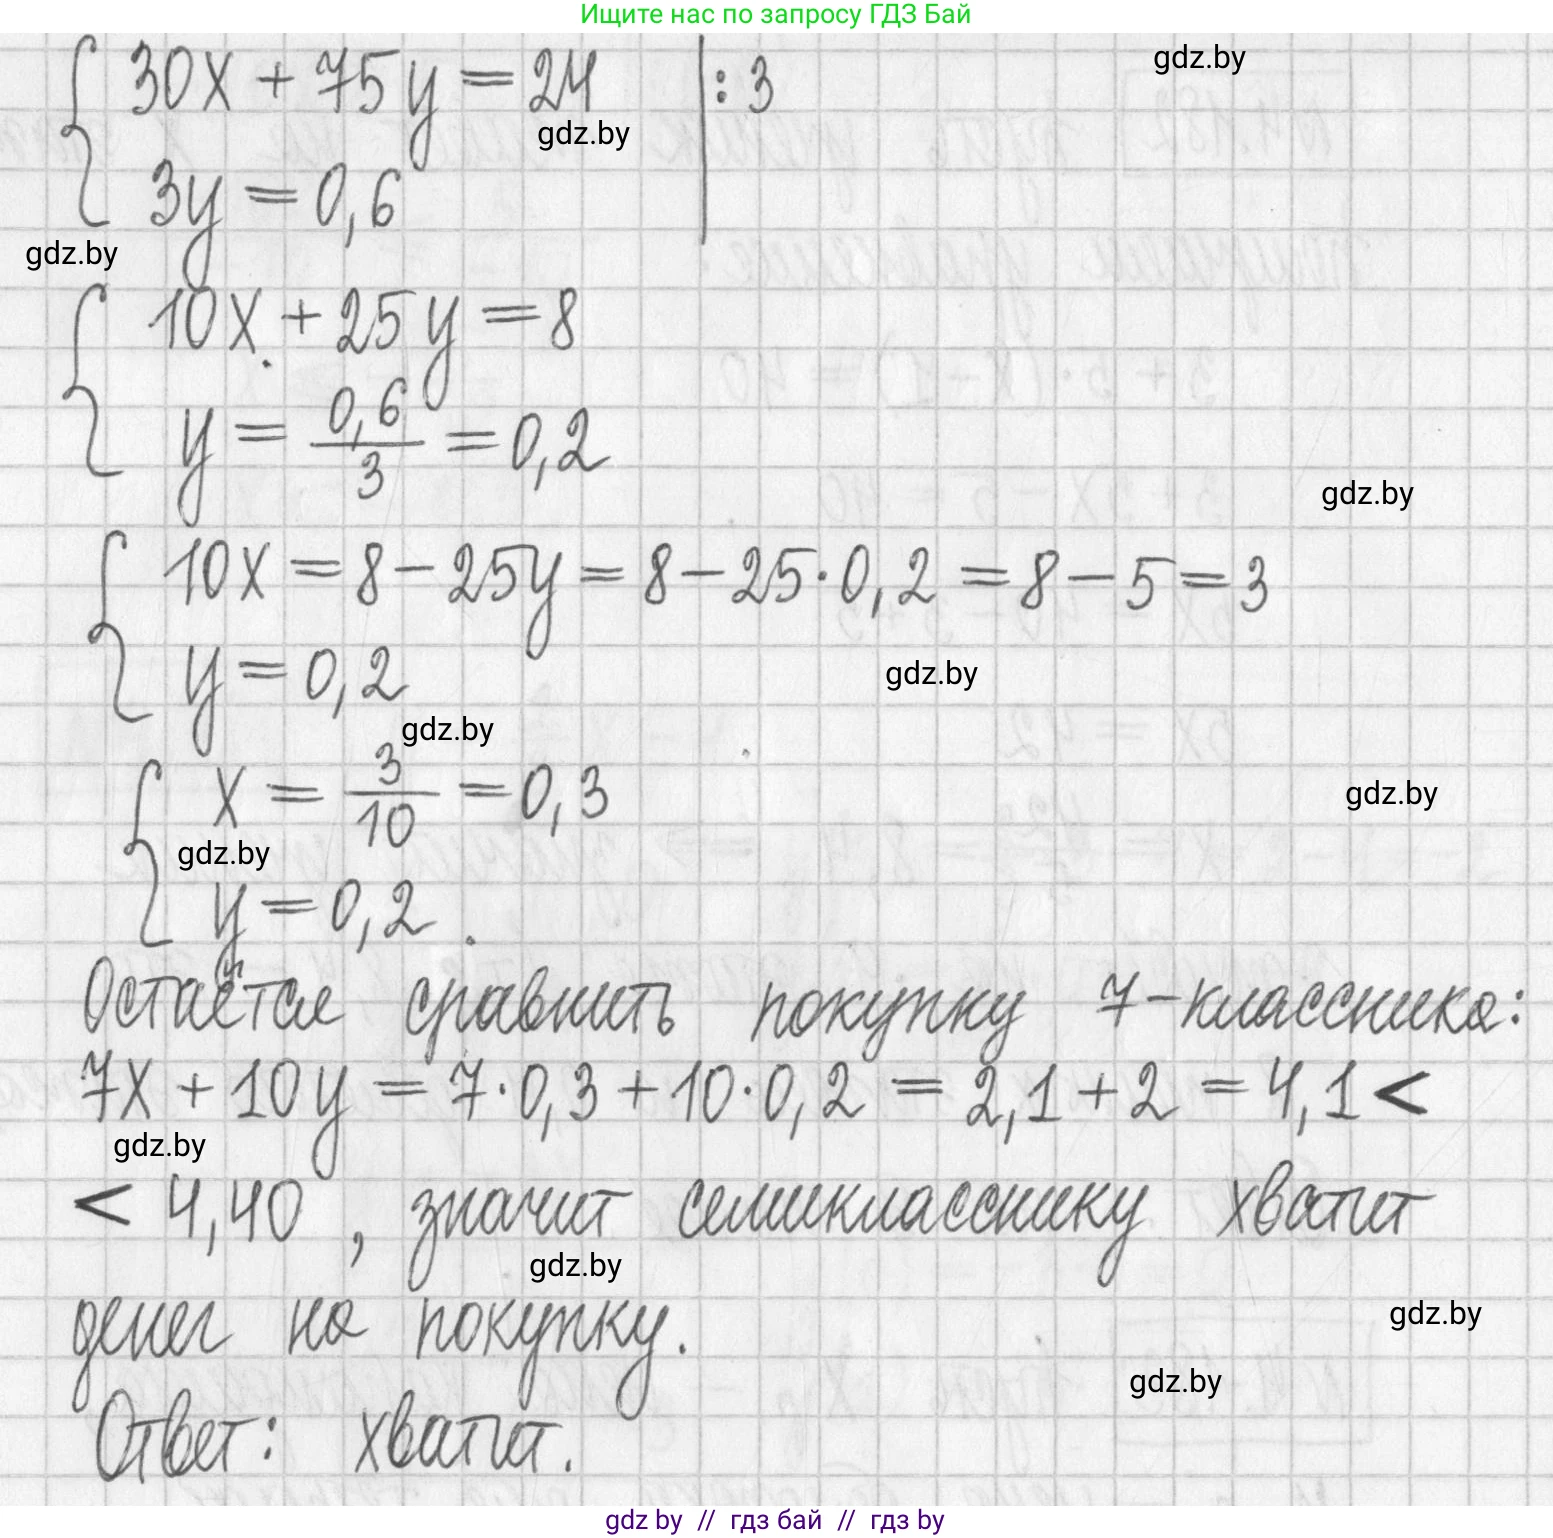 Ищите нас по запросу ГДЗ Бай
30x + 75y = 24 | : 3
gdz.by
gdz.by
3y = 0,6
gdz.by
10x + 25y = 8
y = 0,6/3 = 0,2
gdz.by
10x = 8 - 25y = 8 - 25·0,2 = 8 - 5 = 3
y = 0,2
gdz.by
gdz.by
x = 3/10 = 0,3
gdz.by
gdz.by
y = 0,2.
Остаётся сравнить покупку 7-классника:
7x + 10y = 7·0,3 + 10·0,2 = 2,1 + 2 = 4,1 <
gdz.by
< 4,40, значит семикласснику хватит
gdz.by
денег на покупку.
gdz.by
gdz.by
Ответ: хватит.
gdz by // гдз бай // гдз by